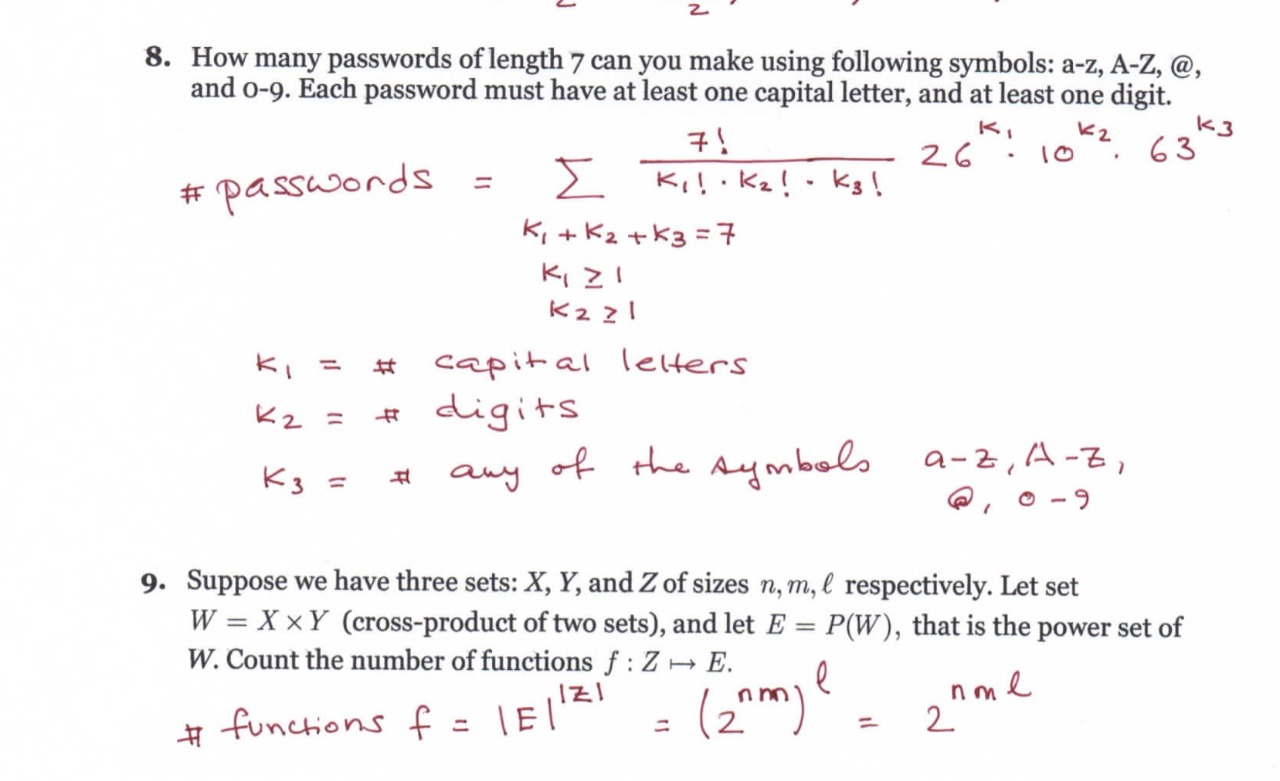 8. How many passwords of length 7 can you make using following symbols: a-z, A-Z, @,
and 0-9. Each password must have at least one capital letter, and at least one digit.
# passwords = Σ 7! / (K₁! · K₂! · K₃!) 26^K₁ · 10^K₂ · 63^K₃
K₁ + K₂ + K₃ = 7
K₁ ≥ 1
K₂ ≥ 1
K₁ = # capital letters
K₂ = # digits
K₃ = # any of the symbols a-z, A-Z,
@, 0-9
9. Suppose we have three sets: X, Y, and Z of sizes n, m, ℓ respectively. Let set
W = X × Y (cross-product of two sets), and let E = P(W), that is the power set of
W. Count the number of functions f : Z ↦ E.
# functions f = |E|^|Z| = (2^nm)^ℓ = 2^nmℓ